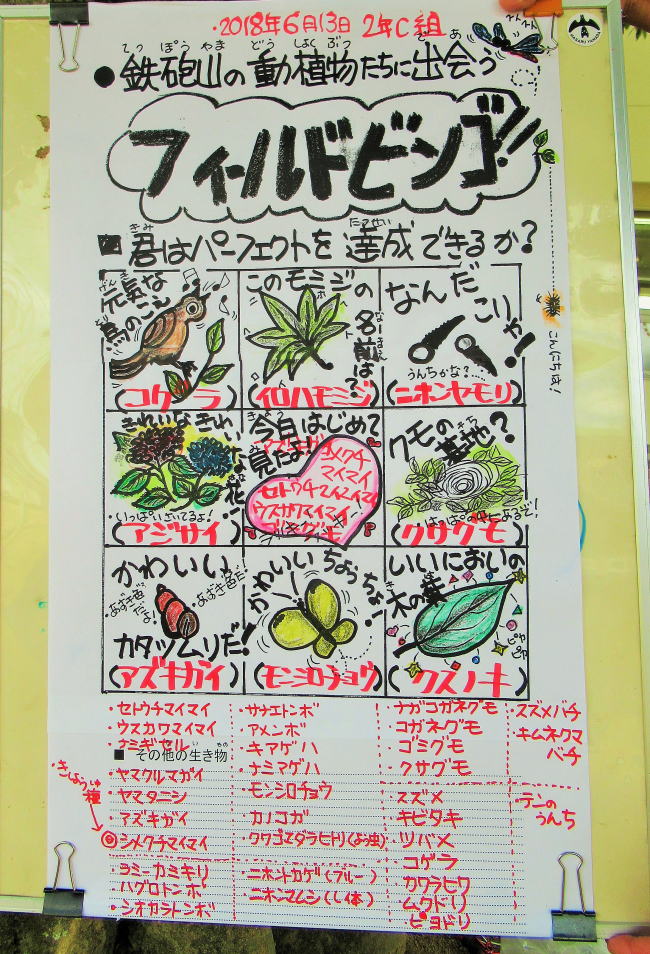 ・2018年6月13日 2年C組
てっぽうやま どうしょくぶつ であ
●鉄砲山の動植物たちに出会う
フィールドビンゴ!!
きみ たっせい
■君はパーフェクトを達成できるか?
げんき
元気な
とり
鳥のこえ
(コゲラ)
このモミジの
なまえ
名前は?
(イロハモミジ)
なんだ
こりゃ!
うんちかな?
(ニホンヤモリ)
きれいな
きれいな花
・いっぱいさいてるよ!
(アジサイ)
きょう
今日はじめて
み
見たよ!
シメクチ
マイマイ
セトウチマイマイ
ウスカワマイマイ
クモの
きち
基地?
はっぱの中にあるぞ!
(クサグモ)
かわいい
・あずき色だよ!
・あずき色だ!
カタツムリだ!
(アズキガイ)
かわいいちょうちょ!
(モンシロチョウ)
いいにおいの
木の葉
ピャ
ピャ
(クスノキ)
・セトウチマイマイ
・ウスカワマイマイ
・ナミギセル
■ その他の生き物
・ヤマクルマガイ
・ヤマタニシ
・アズキガイ
・きしょうしゅ
種
◎シメクチマイマイ
・ヨミーカミキリ
・ハグロトンボ
・シオカラトンボ
・サナエトンボ
・アメンボ
・キアゲハ
・ナミアゲハ
・モンシロチョウ
・カノコガ
・クワゴマダラヒトリ(よう虫)
・ニホントカゲ(ブルー)
・ニホンマムシ(し体)
・ナガコガネグモ
・コガネグモ
・ゴミグモ
・クサグモ
・スズメ
・キビタキ
・ツバメ
・コゲラ
・カワラヒワ
・ムクドリ
・ヒヨドリ
・スズメバチ
・キムネクマ
バチ
・テンの
うんち
こんにちは!